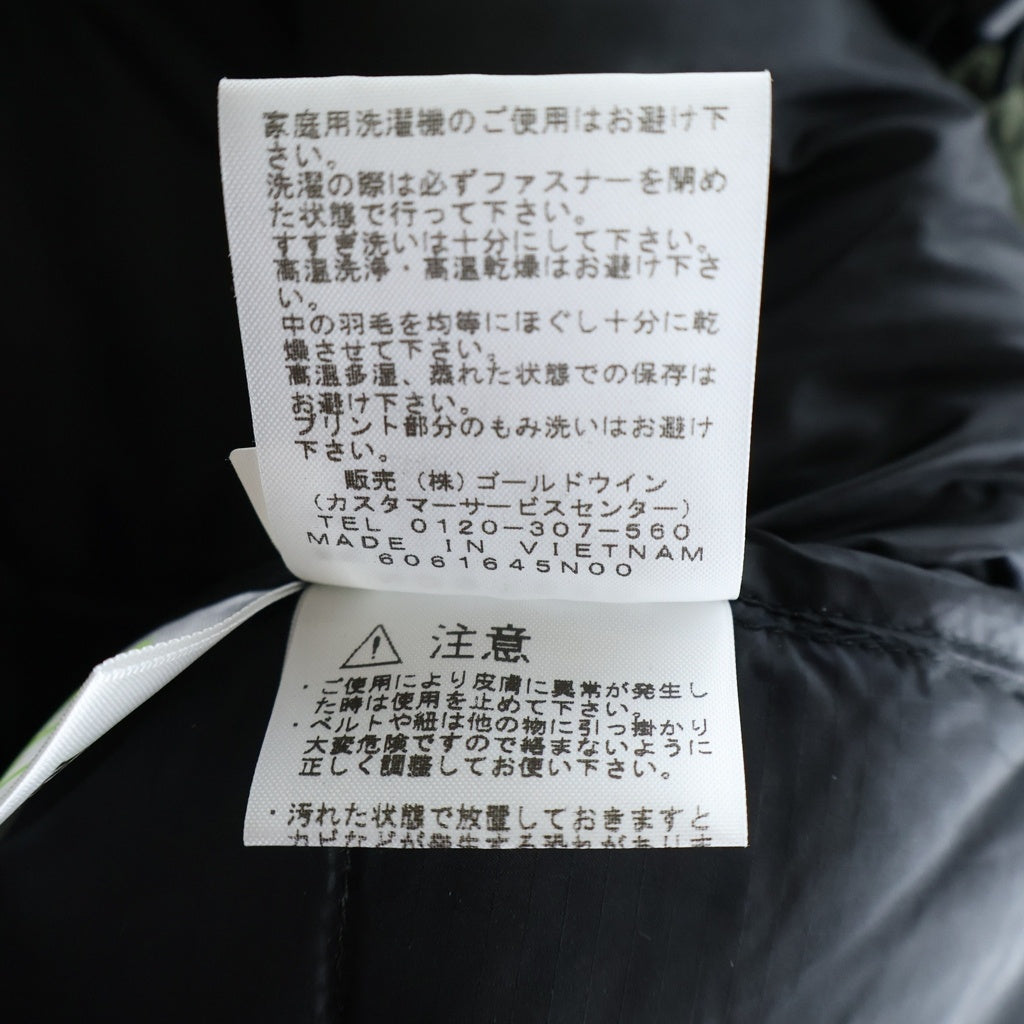 家庭用洗濯機のご使用はお避け下
さい。
洗濯の際は必ずファスナーを閉め
た状態で行って下さい。
すすぎ洗いは十分にして下さい。
高温洗浄・高温乾燥はお避け下さ
い。
中の羽毛を均等にほぐし十分に乾
燥させて下さい。
高温多湿、蒸れた状態での保存は
お避け下さい。
プリント部分のもみ洗いはお避け
下さい。
販売（株）ゴールドウイン
（カスタマーサービスセンター）
TEL 0120-307-560
MADE IN VIETNAM
6061645N00
注意
・ご使用により皮膚に異常が発生し
た時は使用を止めて下さい。
・ベルトや紐は他の物に引っ掛かり
大変危険ですので絡まないように
正しく調整してお使い下さい。
・汚れた状態で放置しておきますと
カビなどが発生する恐れがありま